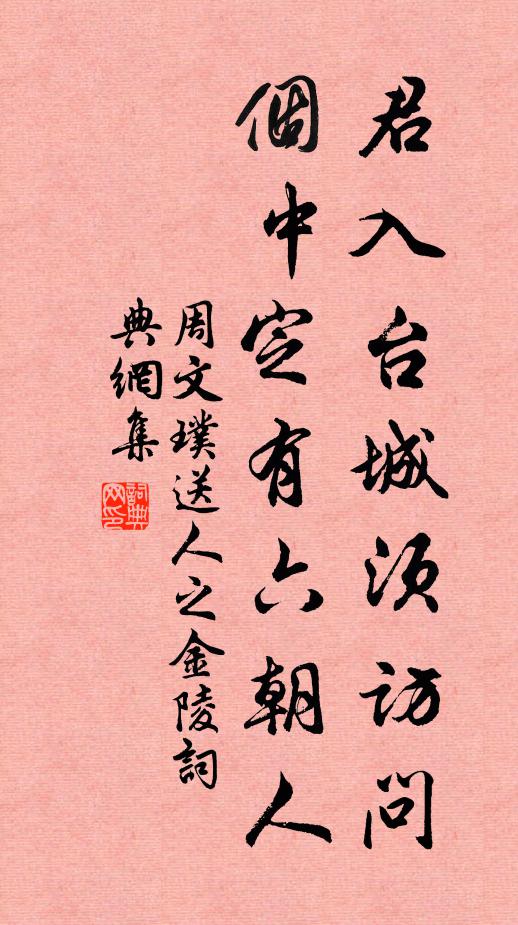 君入台城須訪問
個中定有六朝人
周文璞送人之金陵詞
典網集
詞典網印